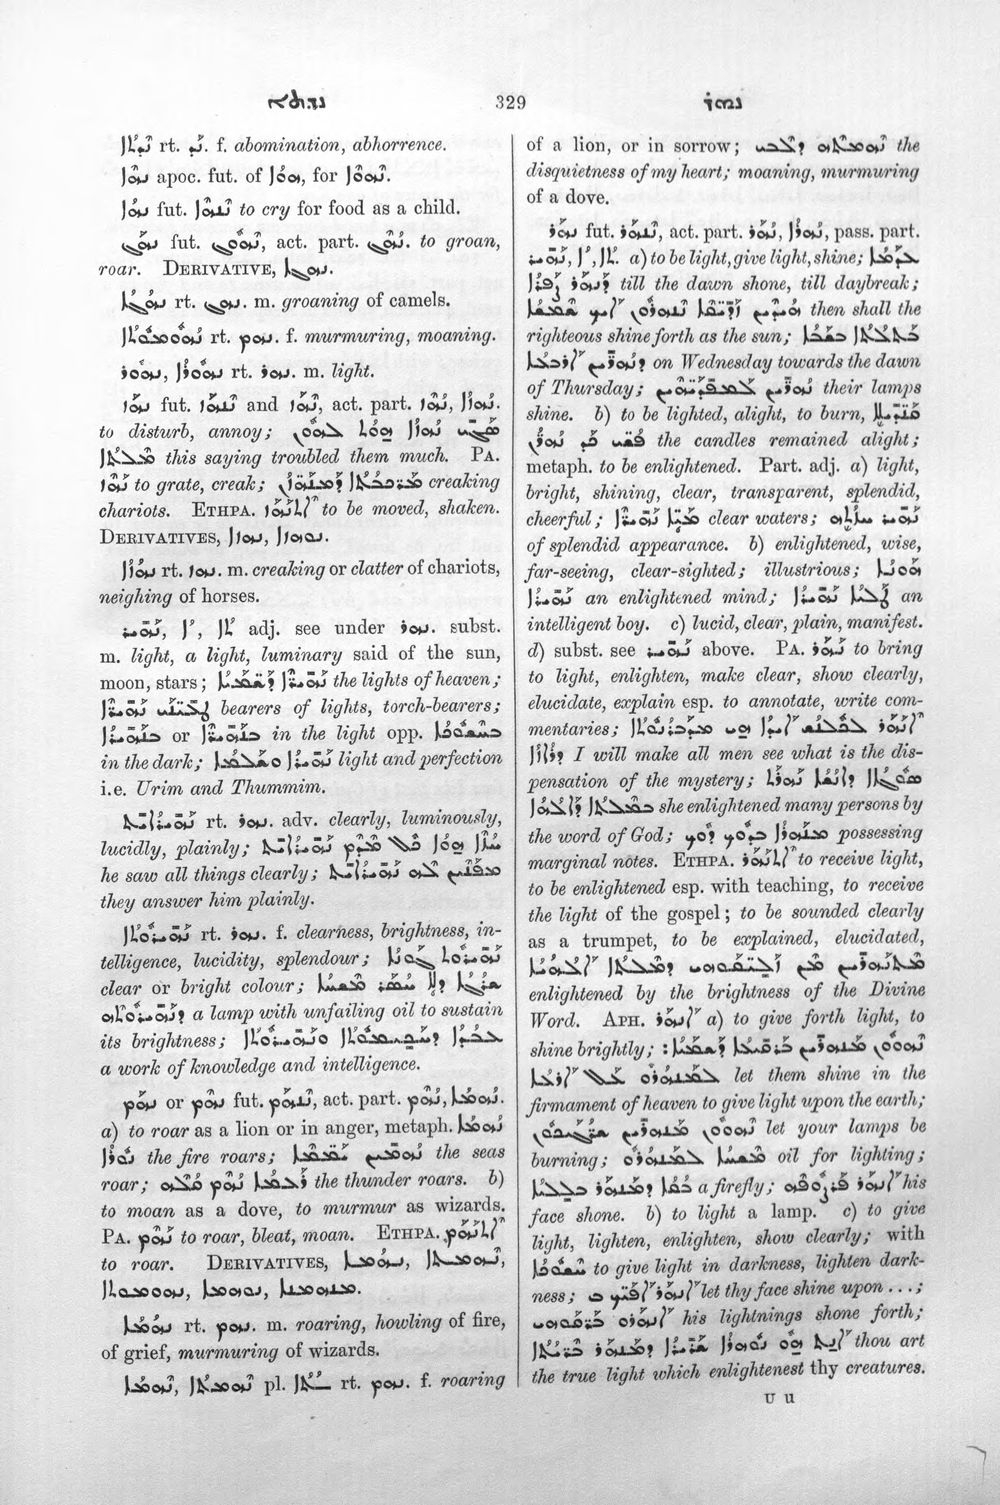 ܢܕܬܐ
329
ܢܗܪ
ܢܕܬܐ rt. ܢܕ. f. abomination, abhorrence.
ܢܗܐ apoc. fut. of ܗܘܐ, for ܢܗܘܐ.
ܢܗܐ fut. ܢܢܗܐ to cry for food as a child.
ܢܗܓ fut. ܢܗܘܓ, act. part. ܢܗܓ. to groan,
roar. DERIVATIVE, ܢܗܓܐ.
ܢܗܓܐ rt. ܢܗܓ. m. groaning of camels.
rt. ܢܗܡ. f. murmuring, moaning.
ܢܗܘܪ, ܢܗܘܪܐ rt. ܢܗܪ. m. light.
ܢܗܙ fut. ܢܢܗܙ and ܢܗܙ, act. part. ܢܗܙ, ܢܗܙܐ.
to disturb, annoy; ܣܓܝ ܢܗܙܐ ܗܘܬ ܠܗܘܢ
ܡܠܬܐ this saying troubled them much. PA.
ܢܗܙ to grate, creak; ܡܪܟܒܬܐ ܕܡܢܗܙܢ creaking
chariots. ETHPA. ܐܬܢܗܙ to be moved, shaken.
DERIVATIVES, ܢܗܙܐ, ܢܘܗܙܐ.
ܢܗܙܐ rt. ܢܗܙ. m. creaking or clatter of chariots,
neighing of horses.
ܢܗܝܪ, ܐ, ܬܐ adj. see under ܢܗܪ. subst.
m. light, a light, luminary said of the sun,
moon, stars; ܢܗܝܪܐ ܕܫܡܝܐ the lights of heaven;
ܛܥܝܢܝ ܢܗܝܪܐ bearers of lights, torch-bearers;
ܒܢܗܝܪܐ or ܒܢܗܝܪܐ in the light opp. ܒܚܫܘܟܐ
in the dark; ܢܗܝܪܐ ܘܫܠܡܐ light and perfection
i.e. Urim and Thummim.
ܢܗܝܪܐܝܬ rt. ܢܗܪ. adv. clearly, luminously,
lucidly, plainly; ܚܙܐ ܗܘܐ ܟܠ ܡܕܡ ܢܗܝܪܐܝܬ
he saw all things clearly; ܡܦܢܝܢ ܠܗ ܢܗܝܪܐܝܬ
they answer him plainly.
ܢܗܝܪܘܬܐ rt. ܢܗܪ. f. clearness, brightness, in-
telligence, lucidity, splendour; ܢܗܝܪܘܬ ܓܘܢܐ
clear or bright colour; ܫܪܓܐ ܕܠܐ ܚܣܪ ܡܫܚܐ
ܕܢܗܝܪܘܬܗ a lamp with unfailing oil to sustain
its brightness; ܥܒܕܐ ܕܚܟܝܡܘܬܐ ܘܢܗܝܪܘܬܐ
a work of knowledge and intelligence.
ܢܗܡ or ܢܗܡ fut. ܢܢܗܡ, act. part. ܢܗܡ, ܢܗܡܐ.
a) to roar as a lion or in anger, metaph. ܢܗܡܐ
ܢܘܪܐ the fire roars; ܢܗܡܝܢ ܝܡܡܐ the seas
roar; ܪܥܡܐ ܢܗܡ ܩܠܗ the thunder roars. b)
to moan as a dove, to murmur as wizards.
PA. ܢܗܡ to roar, bleat, moan. ETHPA. ܐܬܢܗܡ
to roar. DERIVATIVES, ܢܗܡܐ, ܢܗܡܬܐ,
ܡܢܗܡܢܐ.
ܢܗܡܐ rt. ܢܗܡ. m. roaring, howling of fire,
of grief, murmuring of wizards.
ܢܗܡܐ, ܢܗܡܬܐ pl. rt. ܢܗܡ. f. roaring
of a lion, or in sorrow; ܢܗܡܬܗ ܕܠܒܝ the
disquietness of my heart; moaning, murmuring
of a dove.
ܢܗܪ fut. ܢܢܗܪ, act. part. ܢܗܪ, ܢܗܪܐ, pass. part.
ܢܗܝܪ, ܐ, ܬܐ. a) to be light, give light, shine; ܥܕܡܐ
ܕܢܗܪ ܨܦܪܐ till the dawn shone, till daybreak;
ܗܝܕܝܢ ܙܕܝܩܐ ܢܢܗܪܘܢ ܐܝܟ ܫܡܫܐ then shall the
righteous shine forth as the sun; ܒܐܪܒܥܐ
on Wednesday towards the dawn
of Thursday; ܢܗܪܝܢ ܠܡܦܕܝܗܘܢ their lamps
shine. b) to be lighted, alight, to burn, ܩܢܕܝܠܐ
ܦܫܘ ܟܕ ܢܗܪܝܢ the candles remained alight;
metaph. to be enlightened. Part. adj. a) light,
bright, shining, clear, transparent, splendid,
cheerful; ܡܝܐ ܢܗܝܪܐ clear waters; ܢܗܝܪ ܚܙܬܗ
of splendid appearance. b) enlightened, wise,
far-seeing, clear-sighted; illustrious; ܗܘܢܐ
ܢܗܝܪܐ an enlightened mind; ܛܠܝܐ ܢܗܝܪܐ an
intelligent boy. c) lucid, clear, plain, manifest.
d) subst. see ܢܗܝܪ above. PA. ܢܗܪ to bring
to light, enlighten, make clear, show clearly,
elucidate, explain esp. to annotate, write com-
mentaries; ܐܢܗܪ ܠܟܠܢܫ ܐܝܕܐ ܗܝ ܡܕܒܪܢܘܬܐ
ܕܐܪܙܐ I will make all men see what is the dis-
pensation of the mystery; ܣܓܝܐܐ ܐܢܫܐ ܢܗܪܬ
ܒܡܠܬܐ ܕܐܠܗܐ she enlightened many persons by
the word of God; possessing
marginal notes. ETHPA. ܐܬܢܗܪ to receive light,
to be enlightened esp. with teaching, to receive
the light of the gospel; to be sounded clearly
as a trumpet, to be explained, elucidated,
ܡܬܢܗܪܝܢ ܡܢ ܕܡܠܬܐ ܐܠܗܝܐ
enlightened by the brightness of the Divine
Word. APH. ܐܢܗܪ a) to give forth light, to
shine brightly; ܢܗܘܘܢ ܡܢܗܪܝܢ ܒܪܩܝܥܐ ܕܫܡܝܐ:
ܠܡܢܗܪܘ ܥܠ ܐܪܥܐ let them shine in the
firmament of heaven to give light upon the earth;
ܢܗܘܘܢ ܡܢܗܪܝܢ ܫܪܓܝܟܘܢ let your lamps be
burning; ܡܫܚܐ ܠܡܢܗܪܘ oil for lighting;
ܕܡܢܗܪ ܒܠܠܝܐ a firefly; ܐܢܗܪ ܦܪܨܘܦܗ his
face shone. b) to light a lamp. c) to give
light, lighten, enlighten, show clearly; with
ܚܫܘܟܐ to give light in darkness, lighten dark-
ness; ܐܢܗܪ ܐܦܝܟ ܒ let thy face shine upon ...;
ܐܢܗܪܘ ܒܪܩܘܗܝ his lightnings shone forth;
ܐܢܬ ܗܘ ܢܘܗܪܐ ܫܪܝܪܐ ܕܡܢܗܪ ܒܪܝܬܐ thou art
the true light which enlightenest thy creatures.
U u